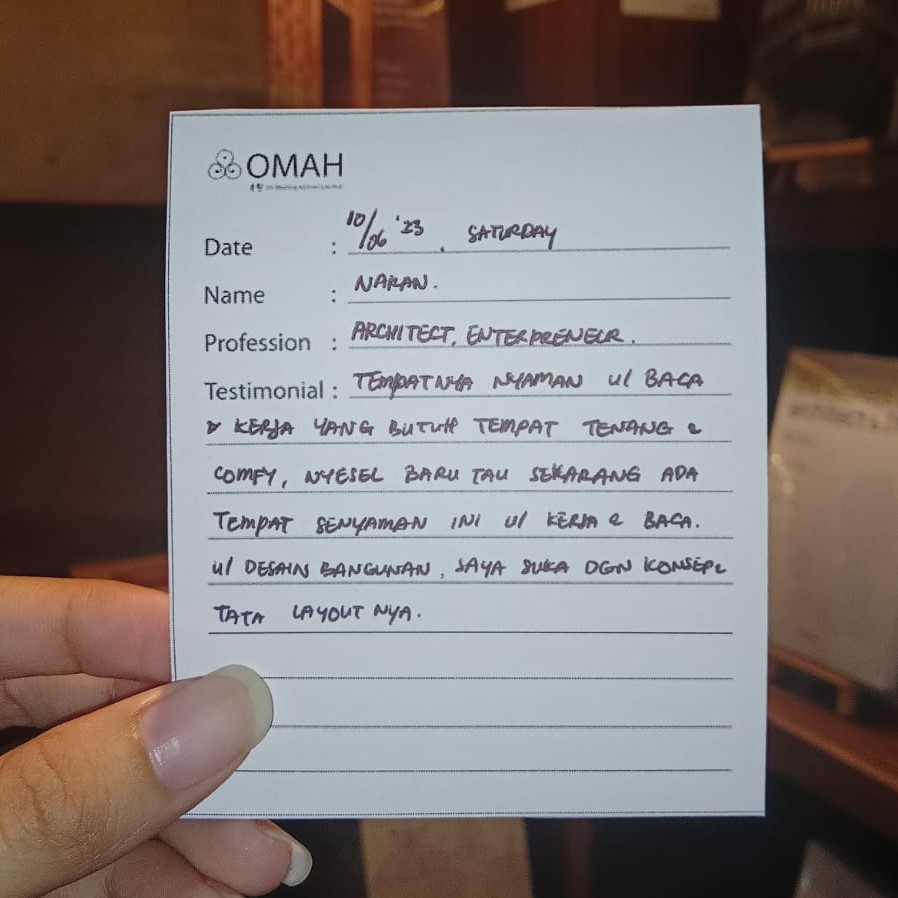 OMAH
Date : 10/06 '23, SATURDAY
Name : NARAN.
Profession : ARCHITECT, ENTERPRENEUR.
Testimonial : TEMPATNYA NYAMAN u/ BACA
& KERJA YANG BUTUH TEMPAT TENANG &
COMFY, NYESEL BARU TAU SEKARANG ADA
TEMPAT SENYAMAN INI u/ KERJA & BACA.
u/ DESAIN BANGUNAN, SAYA SUKA DGN KONSEP&
TATA LAYOUT NYA.